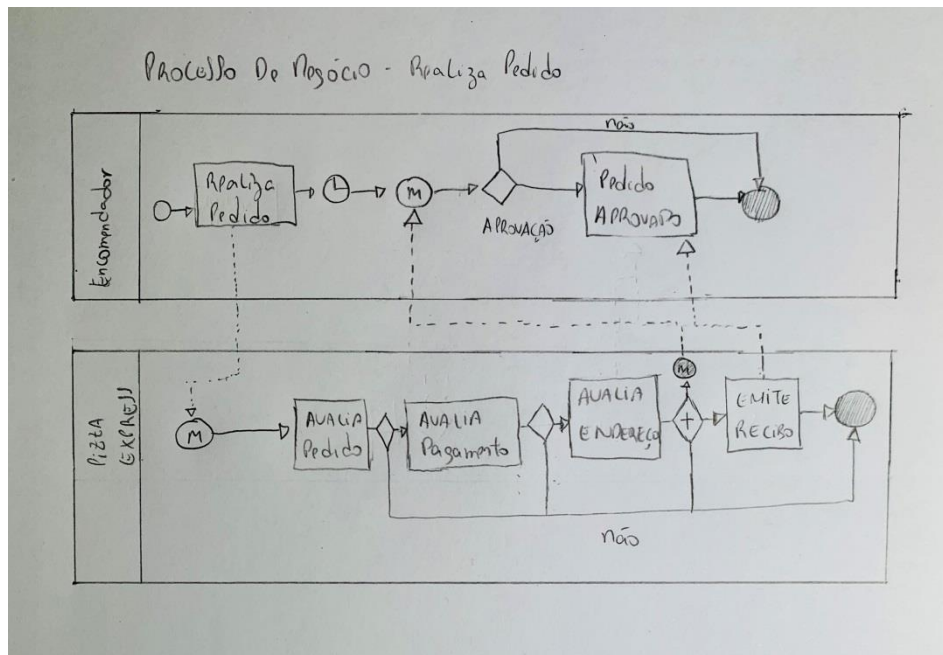 Processo De Negócio - Realiza Pedido
Encomendador
Realiza
Pedido
M
APROVAÇÃO
não
Pedido
APROVADO
PIZZA
EXPRESS
M
AVALIA
Pedido
AVALIA
Pagamento
AVALIA
ENDEREÇO
M
EMITE
RECIBO
não